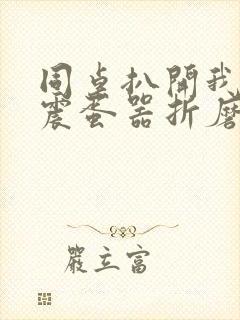 同桌扒開我
震蛋器折磨
嚴立富